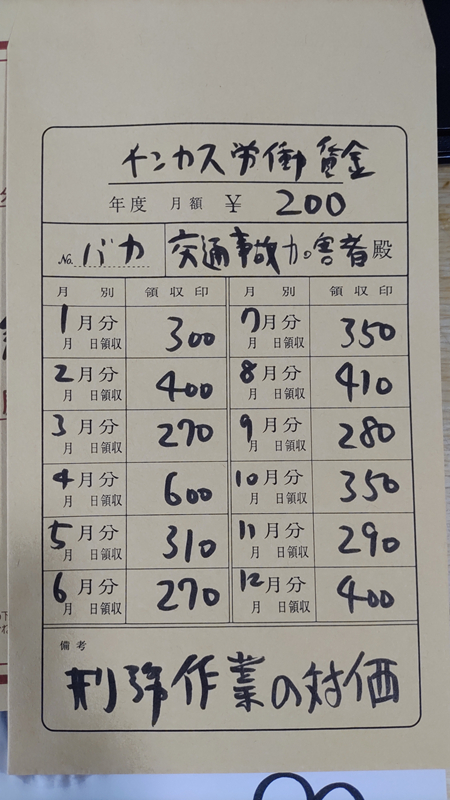 チンカス労働賃金
年度 月額 ¥ 200
No. バカ 交通事故加害者 殿
月別 領収印 月別 領収印
1月分 300 7月分 350
月 日領収 月 日領収
2月分 400 8月分 410
月 日領収 月 日領収
3月分 270 9月分 280
月 日領収 月 日領収
4月分 600 10月分 350
月 日領収 月 日領収
5月分 310 11月分 290
月 日領収 月 日領収
6月分 270 12月分 400
月 日領収 月 日領収
備考
作業の対価